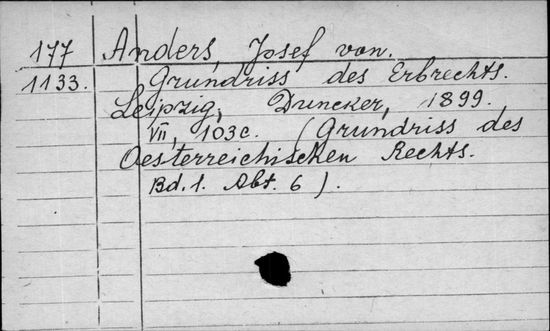 177 Anders, Josef von.
1133. Grundriss des Erbrechts.
Leipzig, Duncker, 1899.
VII, 103c. (Grundriss des
Oesterreichischen Rechts.
Bd.1. Abt. 6).